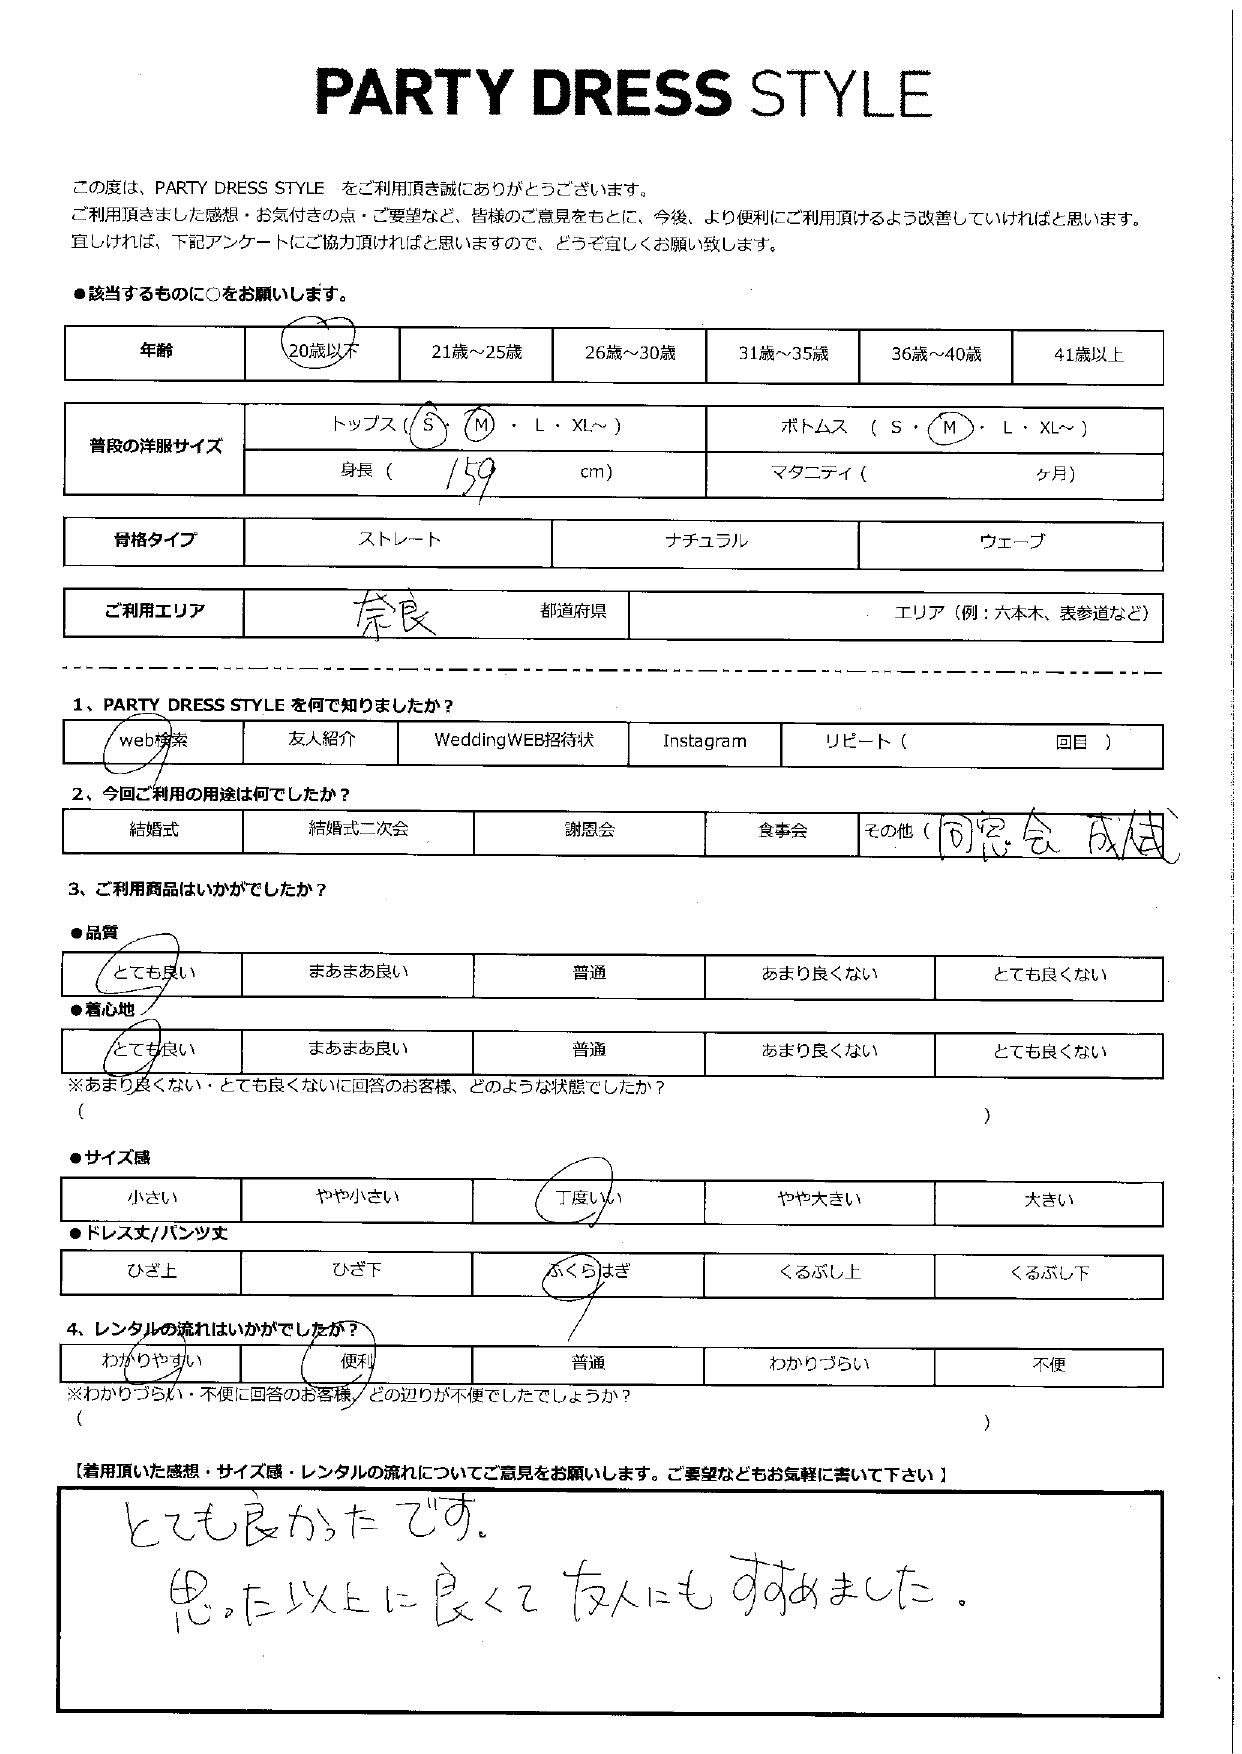 PARTY DRESS STYLE
この度は、PARTY DRESS STYLE をご利用頂き誠にありがとうございます。
ご利用頂きました感想・お気付きの点・ご要望など、皆様のご意見をもとに、今後、より便利にご利用頂けるよう改善していければと思います。
宜しければ、下記アンケートにご協力頂ければと思いますので、どうぞ宜しくお願い致します。
●該当するものに○をお願いします。
年齢 20歳以下 21歳～25歳 26歳～30歳 31歳～35歳 36歳～40歳 41歳以上
普段の洋服サイズ トップス ( S ・ M ・ L ・ XL～ ) ボトムス ( S ・ M ・ L ・ XL～ )
身長 ( 159 cm) マタニティ ( ヶ月)
骨格タイプ ストレート ナチュラル ウェーブ
ご利用エリア 奈良 都道府県 エリア (例：六本木、表参道など)
1、PARTY DRESS STYLE を何で知りましたか？
web検索 友人紹介 WeddingWEB招待状 Instagram リピート ( 回目 )
2、今回ご利用の用途は何でしたか？
結婚式 結婚式二次会 謝恩会 食事会 その他 ( 同窓会
3、ご利用商品はいかがでしたか？
●品質
とても良い まあまあ良い 普通 あまり良くない とても良くない
●着心地
とても良い まあまあ良い 普通 あまり良くない とても良くない
※あまり良くない・とても良くないに回答のお客様、どのような状態でしたか？
( )
●サイズ感
小さい やや小さい 丁度いい やや大きい 大きい
●ドレス丈/パンツ丈
ひざ上 ひざ下 ふくらはぎ くるぶし上 くるぶし下
4、レンタルの流れはいかがでしたか？
わかりやすい 便利 普通 わかりづらい 不便
※わかりづらい・不便に回答のお客様、どの辺りが不便でしたでしょうか？
( )
【着用頂いた感想・サイズ感・レンタルの流れについてご意見をお願いします。ご要望などもお気軽に書いて下さい】
とても良かったです。
思った以上に良くて友人にもすすめました。